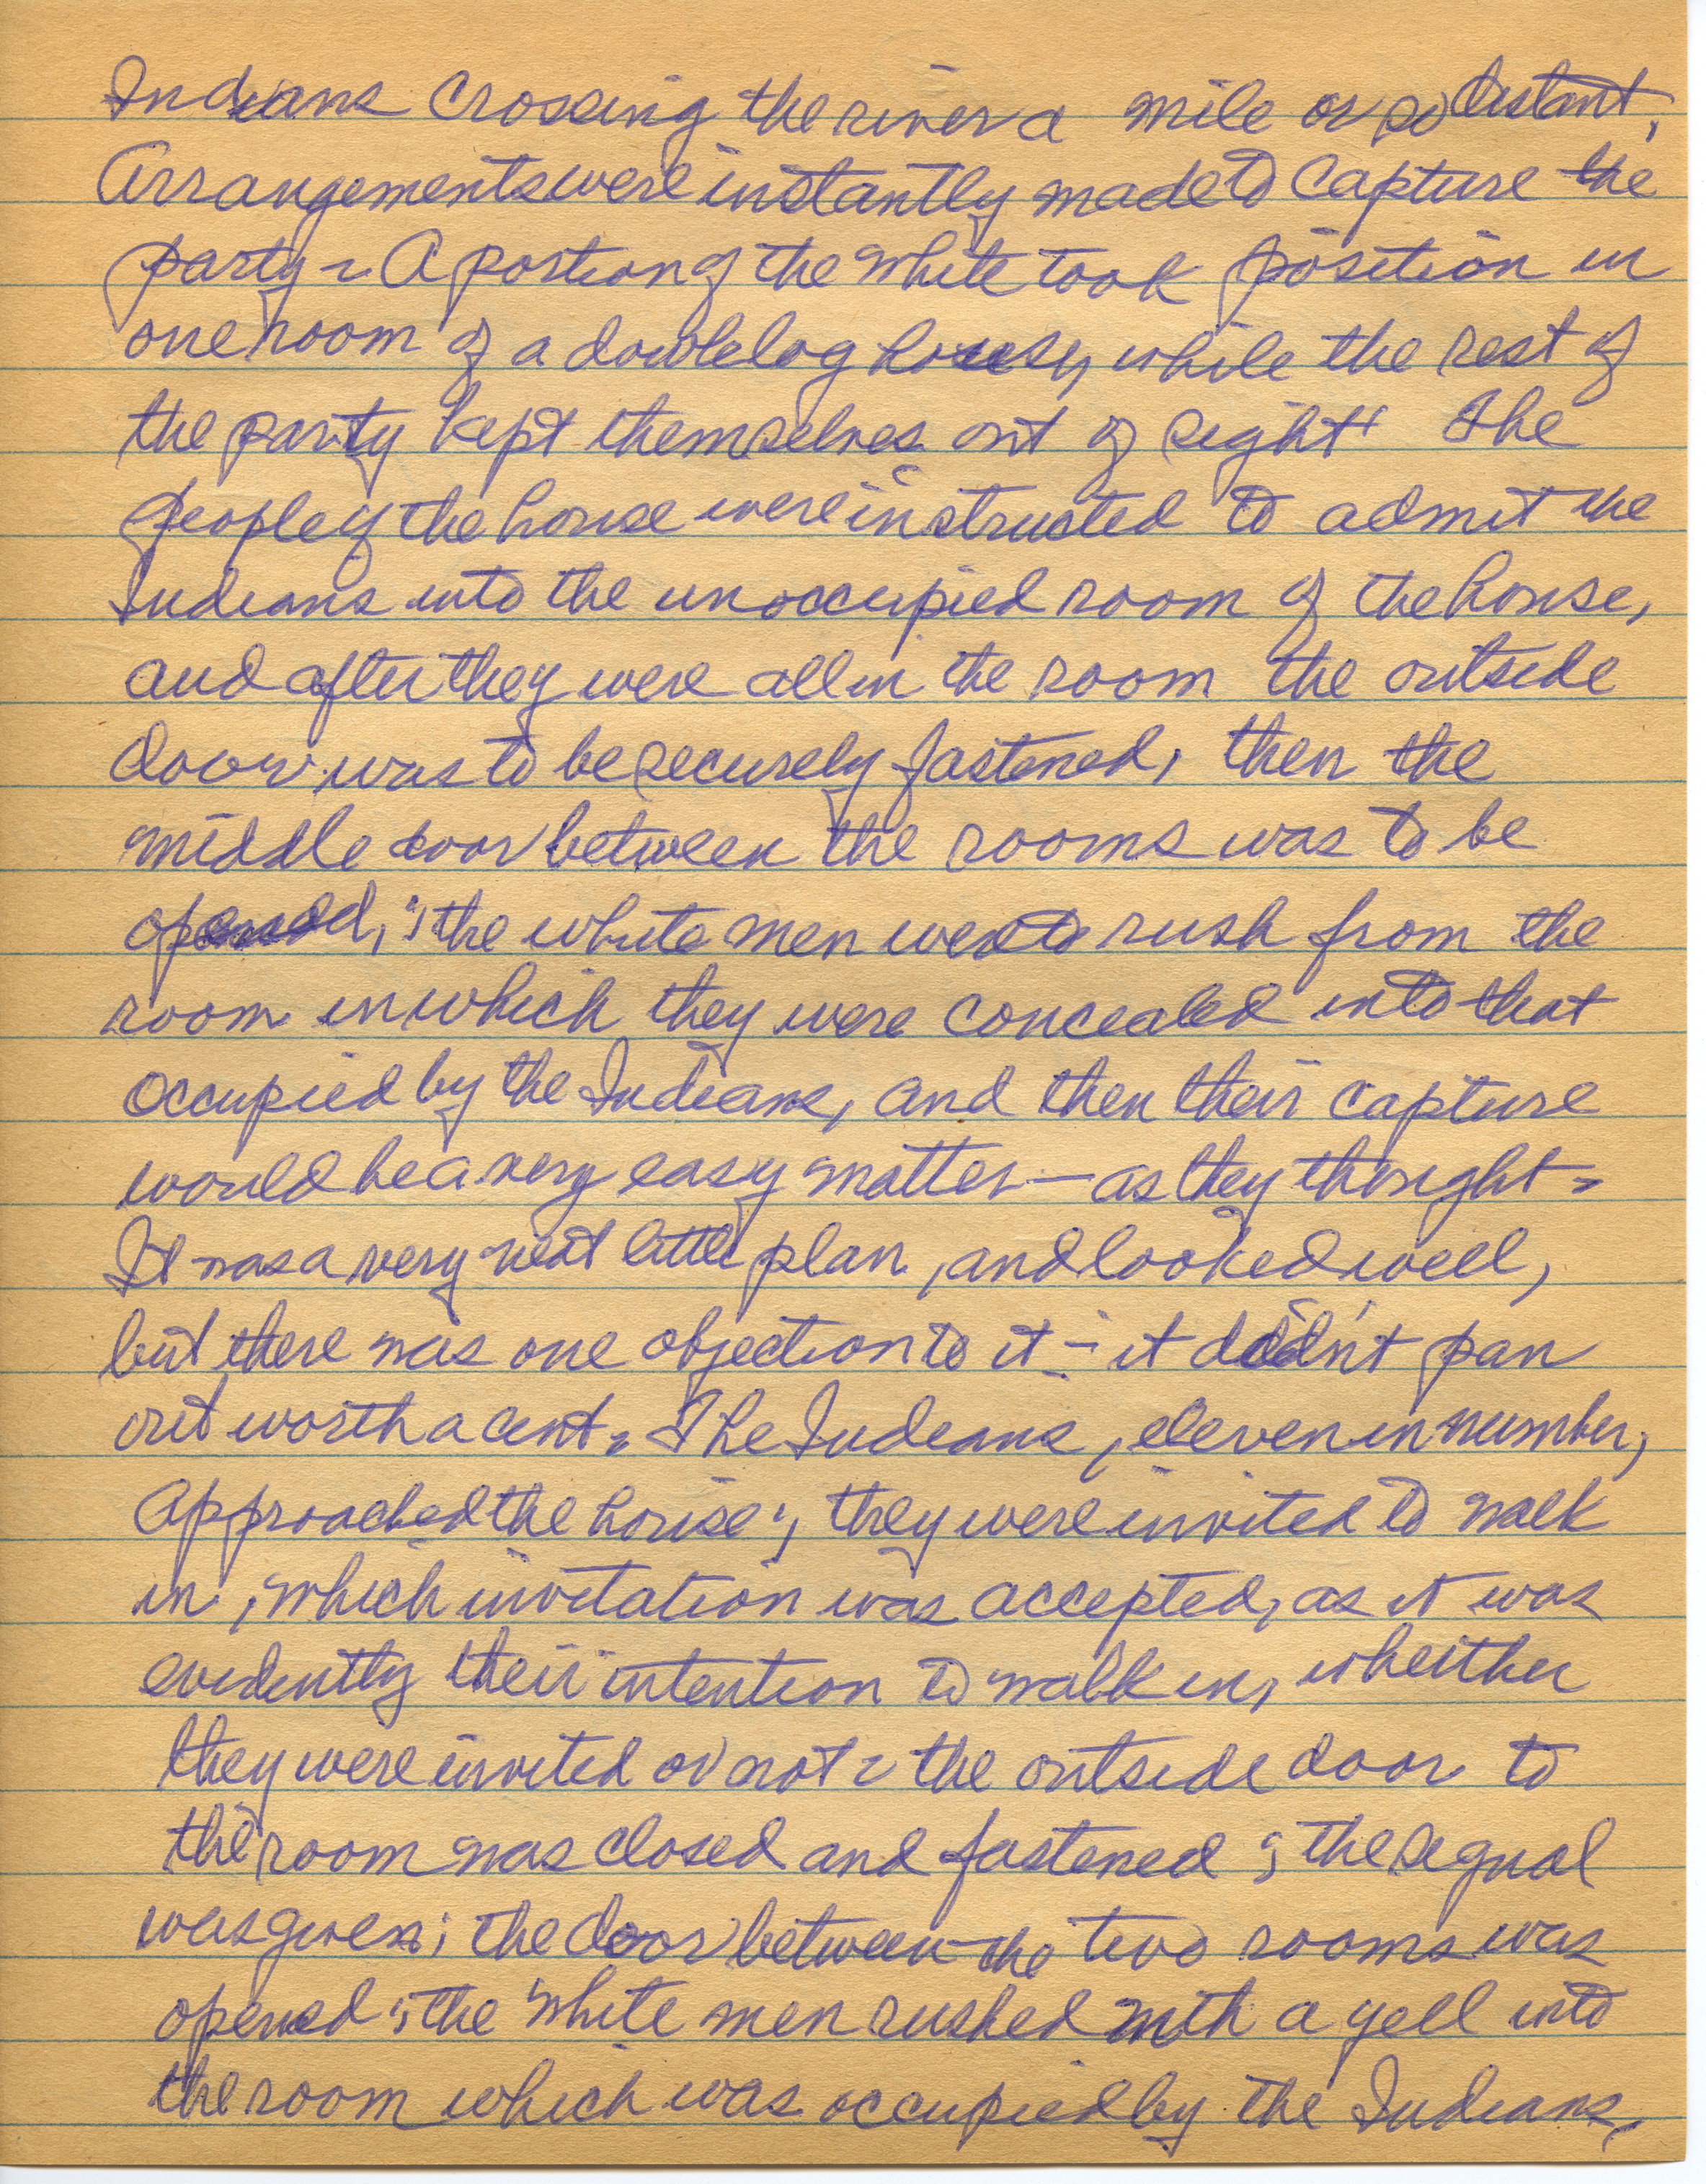 Indians Crossing the river a mile or so distant,
Arrangements were instantly made to Capture the
party - A portion of the white took position in
one room of a double log house, while the rest of
the party kept themselves out of sight. The
people of the house were instructed to admit the
Indians into the unoccupied room of the house,
and after they were all in the room the outside
door was to be securely fastened, then the
middle door between the rooms was to be
opened, ; the white men were to rush from the
room in which they were concealed into that
occupied by the Indians, and then their capture
would be a very easy matter — as they thought -
It was a very neat little plan, and looked well,
but there was one objection to it - it didn't pan
out worth a cent. The Indians, eleven in number,
approached the house; they were invited to walk
in, which invitation was accepted, as it was
evidently their intention to walk in, wheither
they were invited or not - the outside door to
the room was closed and fastened ; the signal
was given; the door between the two rooms was
opened ; the white men rushed with a yell into
the room which was occupied by the Indians,